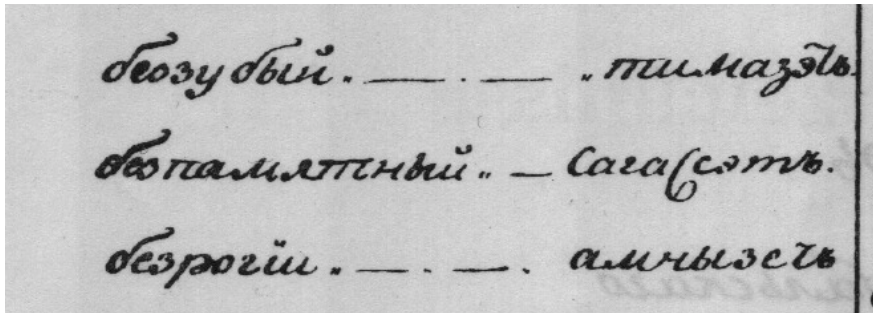 беззубый. — . — . тимазэтъ.
безпамятный. — Сага(сэтъ.
безрогій. — . — . амчызетъ